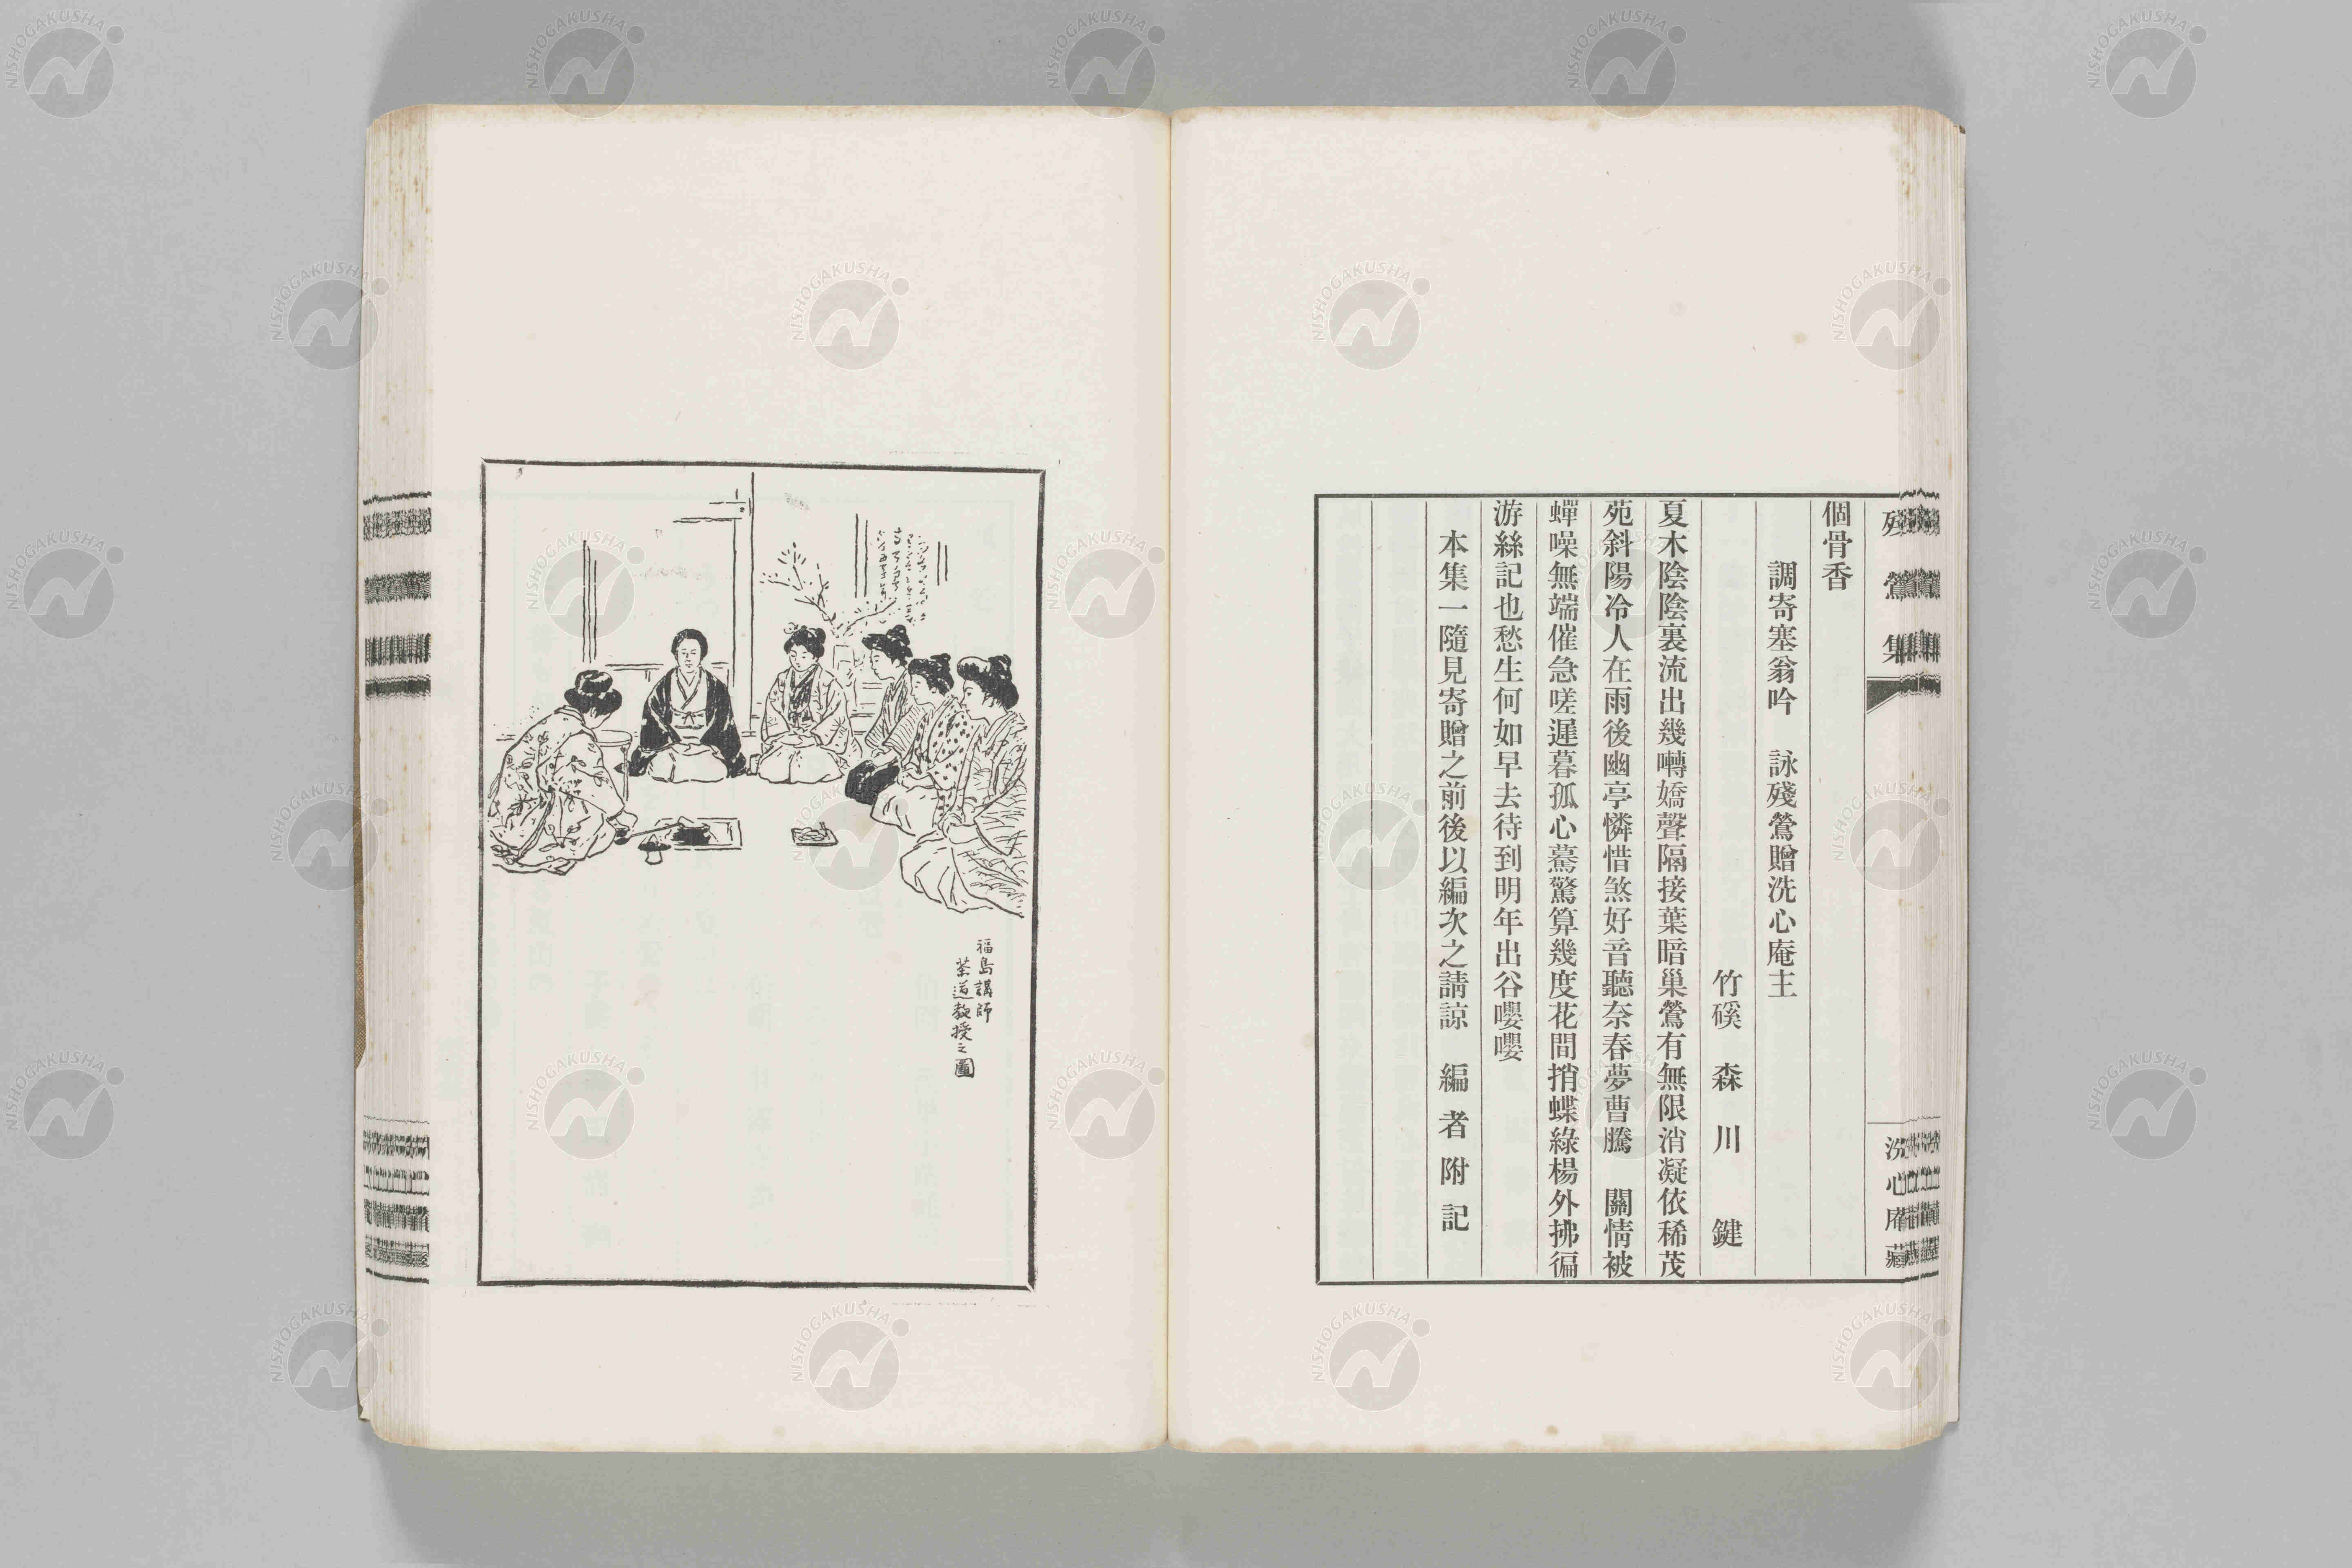 殘鶯集
洗心庵藏
個骨香
調寄塞翁吟　詠殘鶯贈洗心庵主
竹磎　森川　鍵
夏木陰陰裏流出幾囀嬌聲隔接葉暗巢鶯有無限消凝依稀茂
苑斜陽冷人在雨後幽亭憐惜煞好音聽奈春夢曹騰　關情被
蟬噪無端催急嗟遲暮孤心驀驚算幾度花間捎蝶綠楊外拂徧
游絲記也愁生何如早去待到明年出谷嚶嚶
本集一隨見寄贈之前後以編次之請諒　編者附記
福島講師
茶道教授之圖
NISHOGAKUSHA